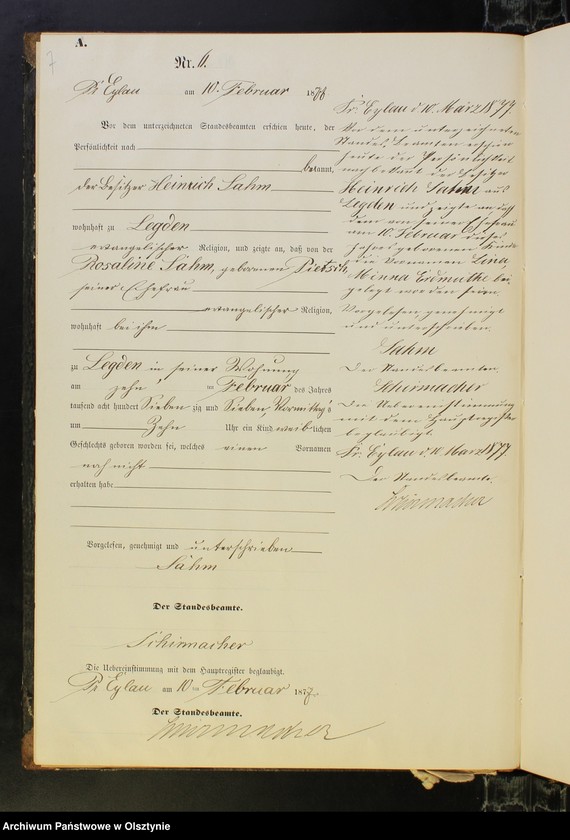 A.
7
Nr. 6.
Pr Eylau am 10. Februar 1878
Vor dem unterzeichneten Standesbeamten erschien heute, der
Persönlichkeit nach
bekannt,
der Besitzer Heinrich Sahm
wohnhaft zu Legden
evangelischer Religion, und zeigte an, daß von der
Rosaline Sahm, geborenen Pietsch,
seiner Ehefrau
evangelischer Religion,
wohnhaft bei ihm
zu Legden in seiner Wohnung
am zehn ten Februar des Jahres
tausend acht hundert Sieben zig und Sieben Vormittags
um Zehn Uhr ein Kind weiblichen
Geschlechts geboren worden sei, welches einen Vornamen
noch nicht
erhalten habe
Vorgelesen, genehmigt und unterschrieben
Sahm
Der Standesbeamte.
Schirmacher
Die Uebereinstimmung mit dem Hauptregister beglaubigt.
Pr Eylau am 10 ten Februar 1877
Der Standesbeamte.
Schirmacher
Pr. Eylau d. 10. März 1877.
Vor dem unterzeichneten
Standesbeamten erschien
heute der Persönlichkeit
nach bekannt der Besitzer
Heinrich Sahm aus
Legden und zeigte an, daß
dem von seiner Ehefrau
am 10. Februar dieses
Jahres geborenen Kinde
die Vornamen Lina,
Minna Erdmuthe bei-
gelegt worden seien.
Vorgelesen, genehmigt
und unterschrieben
Sahm
Der Standesbeamte.
Schirmacher
Die Uebereinstimmung
mit dem Hauptregister
beglaubigt.
Pr. Eylau d. 10. März 1877.
Der Standesbeamte.
Schirmacher
Archiwum Państwowe w Olsztynie